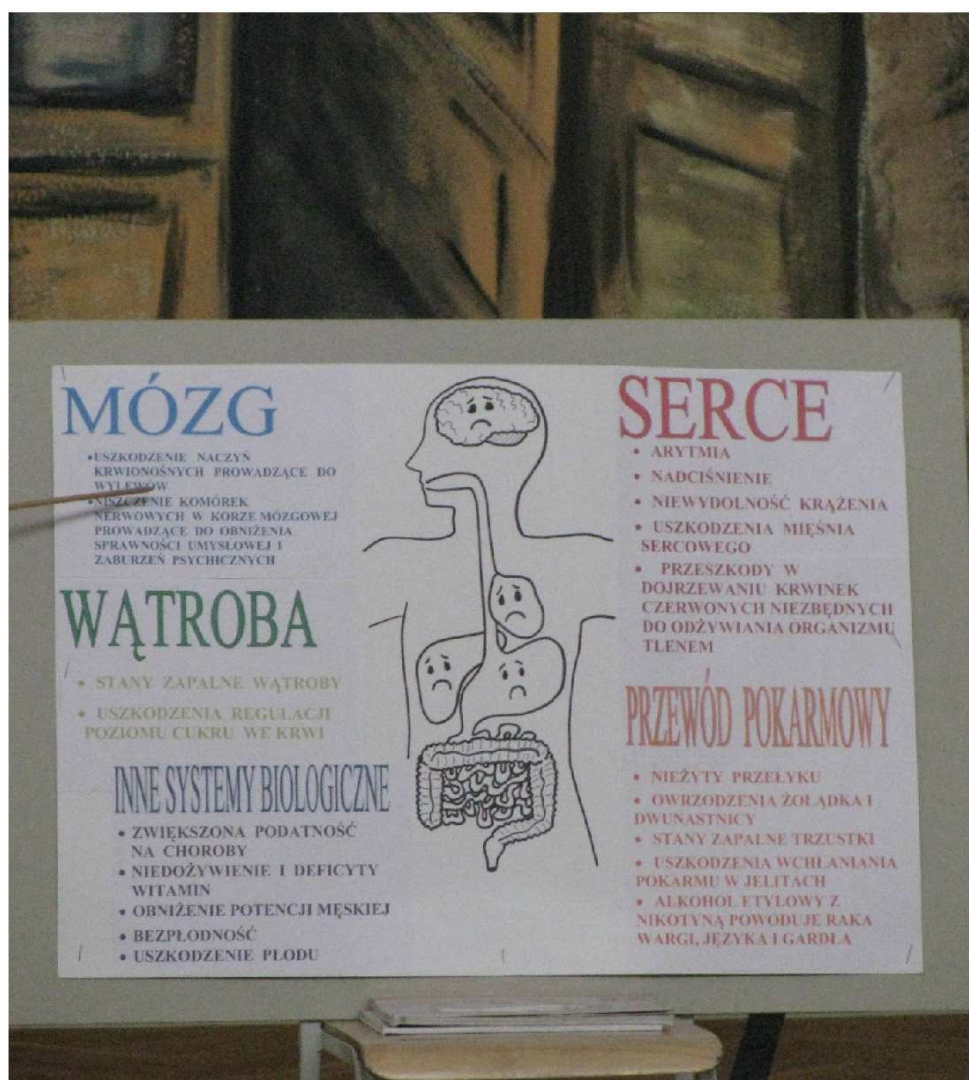 MÓZG
•USZKODZENIE NACZYŃ
KRWIONOŚNYCH PROWADZĄCE DO
WYLEWÓW
•NISZCZENIE KOMÓREK
NERWOWYCH W KORZE MÓZGOWEJ
PROWADZĄCE DO OBNIŻENIA
SPRAWNOŚCI UMYSŁOWEJ I
ZABURZEŃ PSYCHICZNYCH
WĄTROBA
• STANY ZAPALNE WĄTROBY
• USZKODZENIA REGULACJI
POZIOMU CUKRU WE KRWI
INNE SYSTEMY BIOLOGICZNE
• ZWIĘKSZONA PODATNOŚĆ
NA CHOROBY
• NIEDOŻYWIENIE I DEFICYTY
WITAMIN
• OBNIŻENIE POTENCJI MĘSKIEJ
• BEZPŁODNOŚĆ
• USZKODZENIE PŁODU
SERCE
• ARYTMIA
• NADCIŚNIENIE
• NIEWYDOLNOŚĆ KRĄŻENIA
• USZKODZENIA MIĘŚNIA
SERCOWEGO
• PRZESZKODY W
DOJRZEWANIU KRWINEK
CZERWONYCH NIEZBĘDNYCH
DO ODŻYWIANIA ORGANIZMU
TLENEM
PRZEWÓD POKARMOWY
• NIEŻYTY PRZEŁYKU
• OWRZODZENIA ŻOŁĄDKA I
DWUNASTNICY
• STANY ZAPALNE TRZUSTKI
• USZKODZENIA WCHŁANIANIA
POKARMU W JELITACH
• ALKOHOL ETYLOWY Z
NIKOTYNĄ POWODUJE RAKA
WARGI, JĘZYKA I GARDŁA